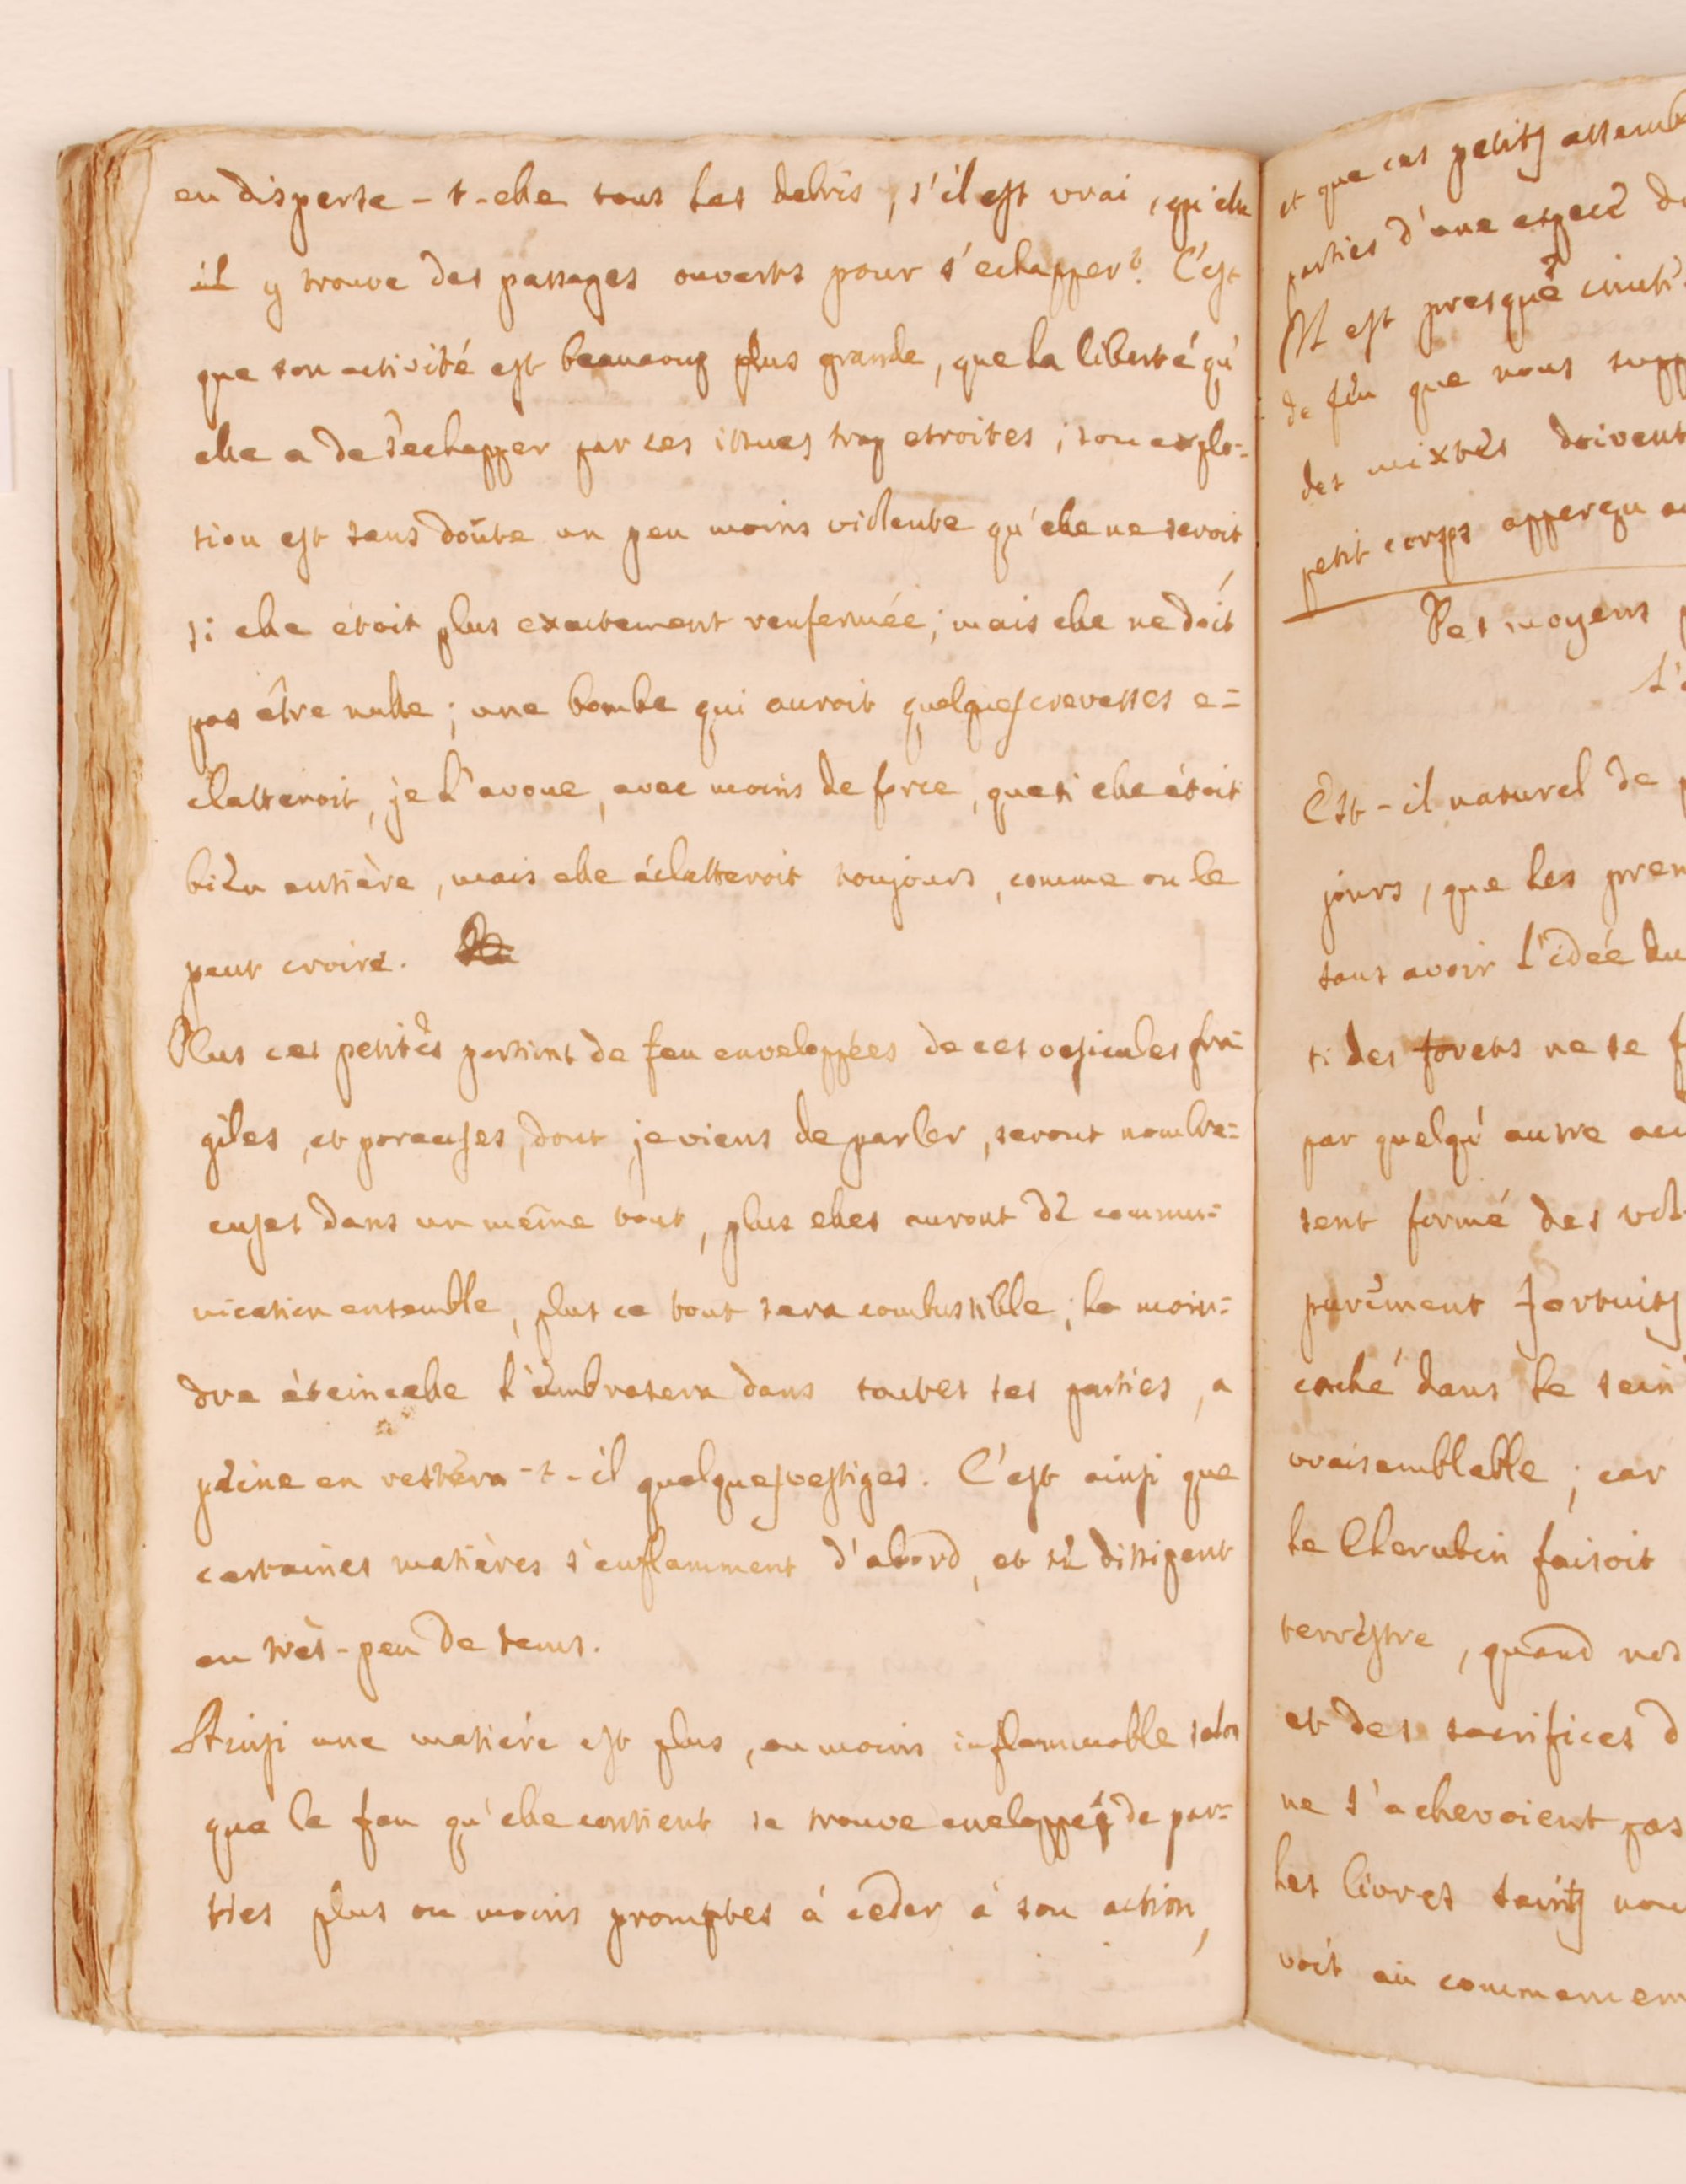 en disperse-t-elle tous les debris, s'il est vrai, qu'elle
il y trouve des passages ouverts pour s'echapper? C'est
que son activité est beaucoup plus grande, que la liberté qu'
elle a de s'echapper par ces issues trop etroites; son explo-
sion est sans doûte un peu moins violente qu'elle ne seroit
si elle étoit plus exactement renfermée; mais elle ne doit
pas être nulle; une bombe qui auroit quelques crevasses e=
clatteroit, je l'avoue, avec moins de force, que si elle étoit
bien entière, mais elle éclatteroit toujours, comme on le
peut croire.
Plus ces petites portions de feu enveloppées de ces vesicules fra-
giles, et poreuses, dont je viens de parler, seront nombre=
euses dans un même tout, plus elles auront de commu=
nication ensemble, plus ce tout sera combustible; la moin=
dre éteincelle l'embrasera dans toutes ses parties, a
peine en restera-t-il quelques vestiges. C'est ainsi que
certaines matières s'enflamment d'abord, et se dissipent
en très-peu de tems.
Ainsi une matière est plus, ou moins inflammable selon
que le feu qu'elle contient se trouve eveloppé de par=
ties plus ou moins promptes à ceder à son action,
et que ces petits assemb
parties d'une espece de
Il est presque inuti
de feu que nous supp
des mixtes doivent
petit corps apperçu au
Des moyens
L'
Est-il naturel de
jours, que les prem
sans avoir l'idée du
si des forets ne se f
par quelqu'autre acc
sent formé des vol
purement fortuits
caché dans le sein
vraisemblable; car
le Cherubin faisoit
terrestre, quand nos
et des sacrifices d
ne s'achevoient pas
les livres saints nou
voit au commencem